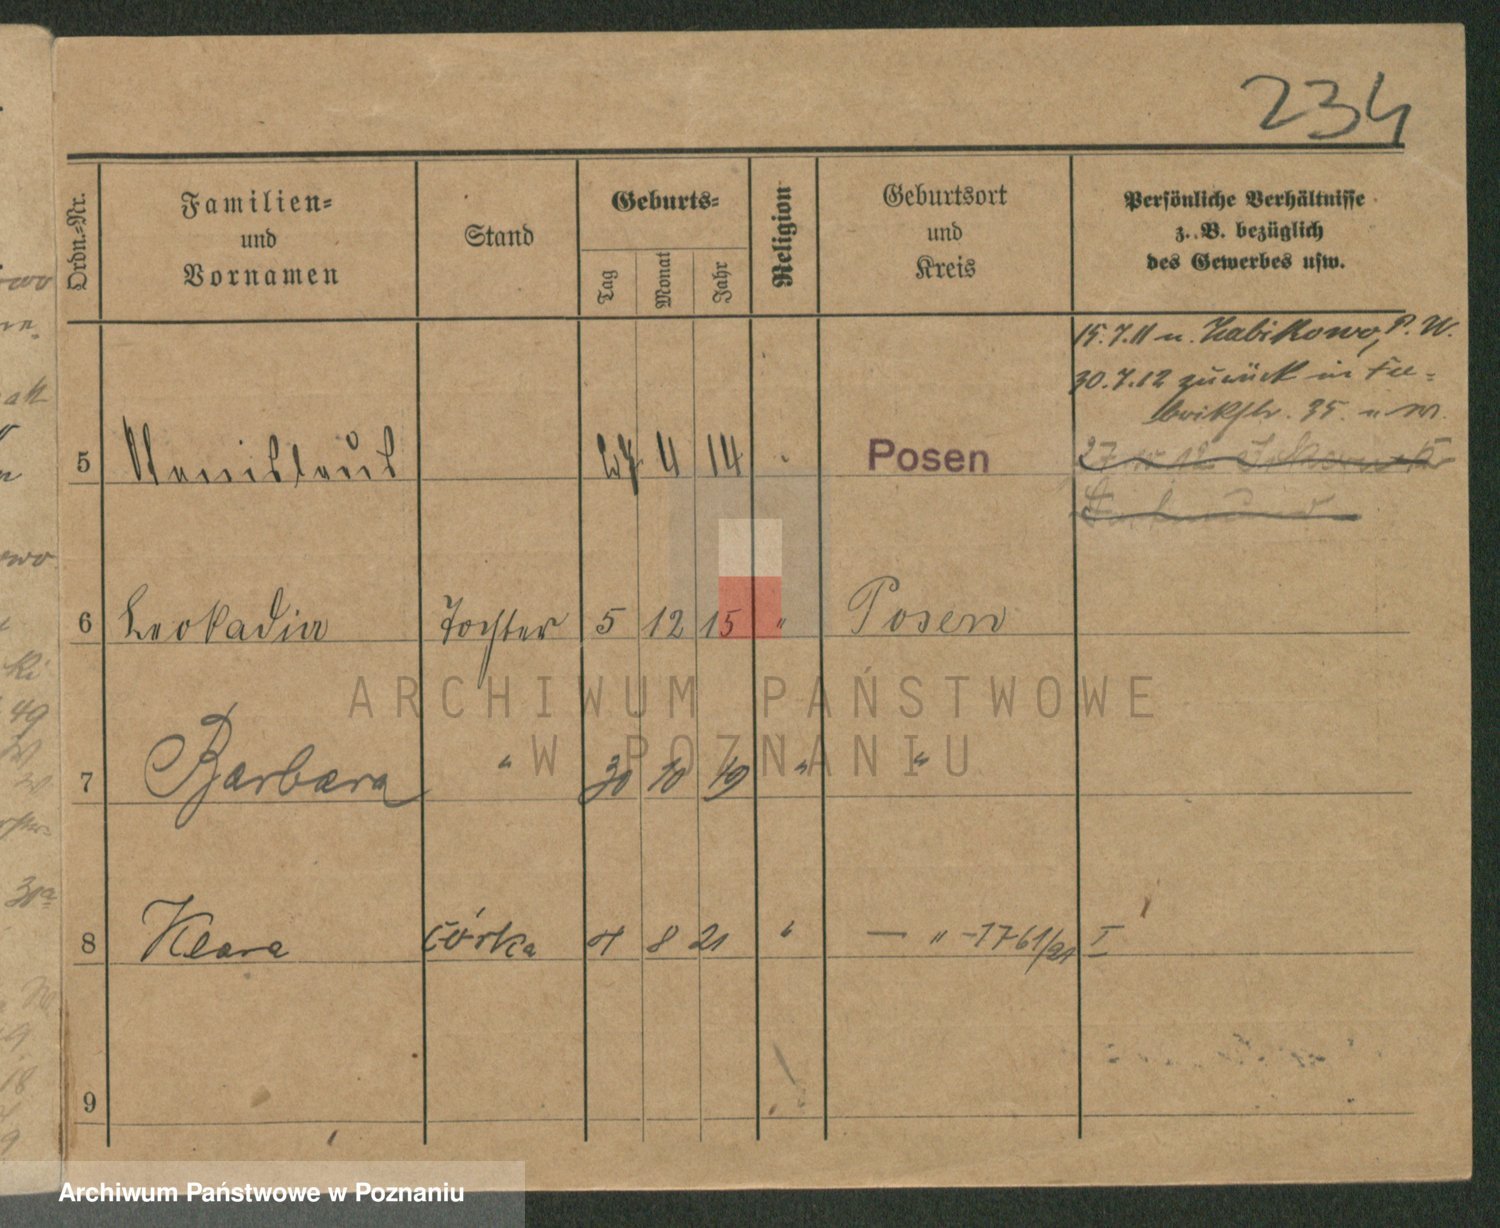 234
Ordn.-Nr.
Familien-
und
Vornamen
Stand
Geburts-
Tag
Monat
Jahr
Religion
Geburtsort
und
Kreis
Persönliche Verhältnisse
z. B. bezüglich
des Gewerbes usw.
15.7.11 n. Zabikowo, P. W.
30.7.12 zurück in Fa-
brikstr. 35.
5 Stanislaus 27 4 14 Posen
6 Leokadia Tochter 5 12 15 " Posen
7 Barbara " 30 10 19 " "
8 Klara córka 4 8 21 " — " - 1761/21 I
9
ARCHIWUM PAŃSTWOWE
W POZNANIU
Archiwum Państwowe w Poznaniu